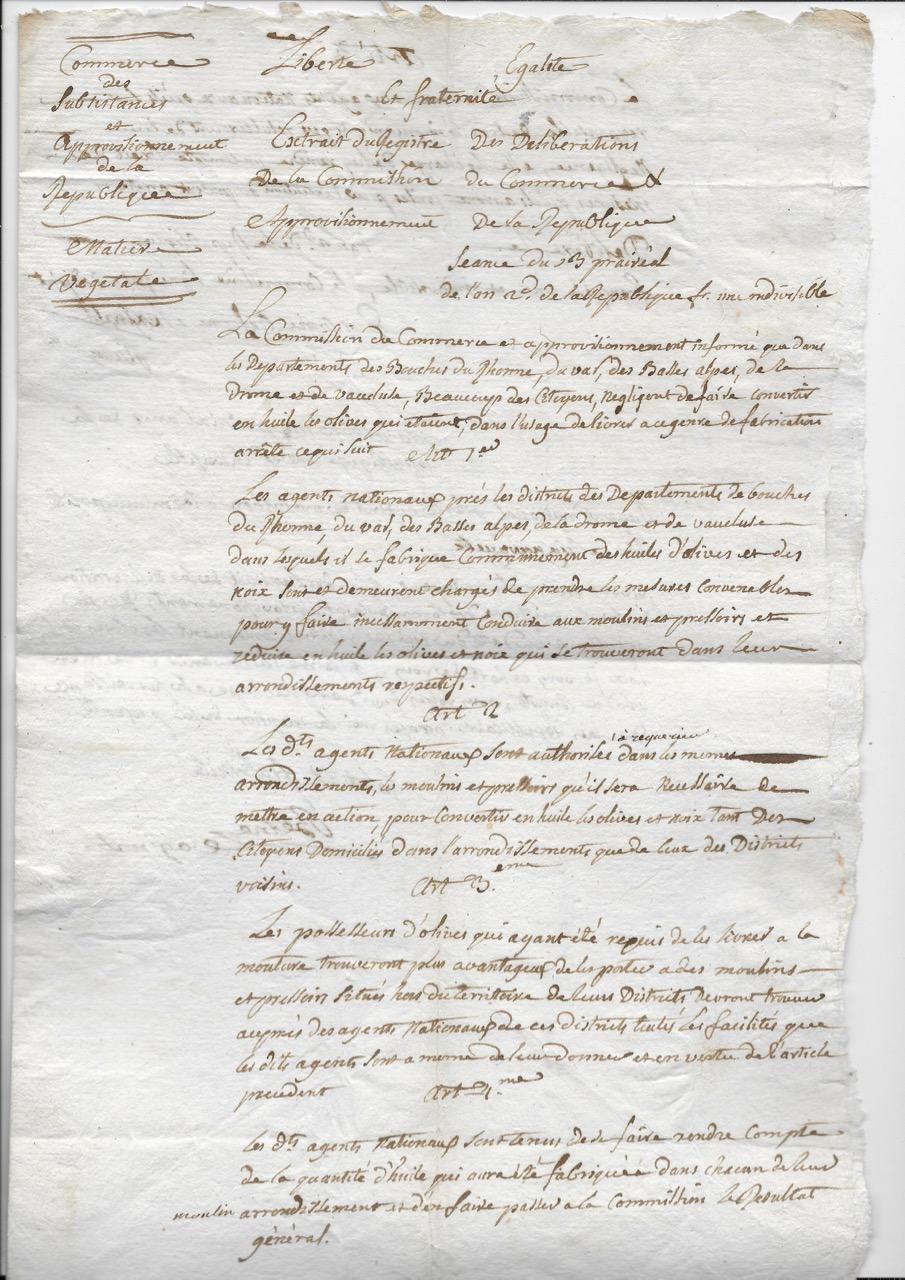 Commerce
des
Subsistances
et
Approvisionnement
de la
Republique
Matiere
Vegetale
Liberté Egalité
Et fraternité
Extrait du Registre Des Deliberations
De la Commission du Commerce &
Approvisionnement De la Republique
Seance du 23 prairéal
de l'an 2d. de la Republique fr. une indivisible
La Commission du Commerce et approvisionnement informé que dans
les Departements des Bouches du Rhonne, du var, des Basses alpes, de la
drome et de vaucluse, Beaucoup des Citoyens, Negligent de faire convertir
en huile les olives qui etaient, dans l'usage de livrer a ce genre de fabrication
arrête ce qui suit Art 1er
Les agents nationaux près les districts des Departements de bouches
du Rhonne, du var, des Basses alpes, de la drome et de vaucluse
dans lesquels il se fabrique Communement des huiles d'olives et des
noix sont et demeurent chargés de prendre les mesures Convenables
pour y faire incessamment Conduire aux moulins et pressoirs et
réduire en huile les olives et noix qui se trouveront dans leur
arrondissements respectifs.
Art 2
Les dts agents Nationaux sont authorisés à requerir dans les memes
arrondissements, les moulins et pressoirs qu'il sera Necessaire de
mettre en action, pour Convertir en huile les olives et noix tant Des
Citoyens Domiciliés dans l'arrondissements que de Ceux des Districts
voisins. Art 3.eme
Les possesseurs d'olives qui ayant été requis de les livrer a la
mouture trouveront plus avantageux de les porter a des moulins
et pressoirs situés hors du territoire de leurs Districts Devront trouver
auprès des agents Nationaux de ces districts toutes Les facilités que
les dits agents sont a meme de leur donner et en vertu de l'article
precedent Art 4.me
Les dts agents Nationaux sont tenus de se faire rendre Compte
de la quantité d'huile qui aura été fabriquée dans chacun de leur
moulin arrondissement et d'en faire passer a la Commission le Resultat
général.